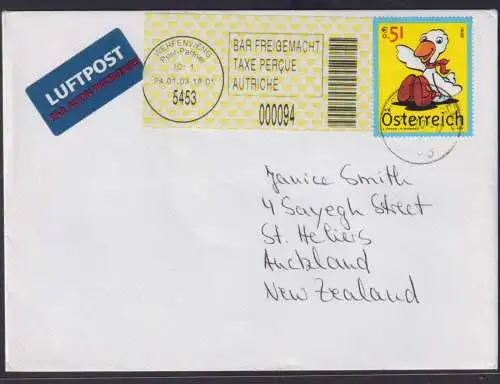 LUFTPOST
WERFENWENG
Post-Partner
ID: 1
24.01.03-18.01
5453
BAR FREIGEMACHT
TAXE PERÇUE
AUTRICHE
000094
€ 0.51
Österreich
Janice Smith
4 Sayegh Street
St. Heliers
Auckland
New Zealand